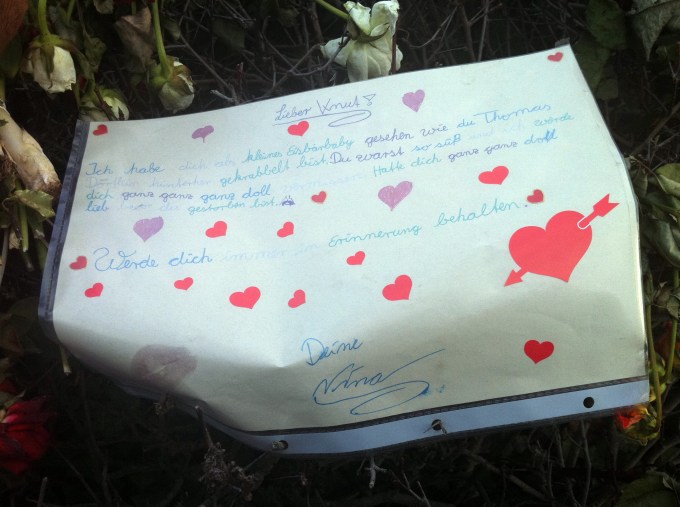 Lieber Knut!
Ich habe dich als kleine Eisbärbaby gesehen wie du Thomas
hinterher gekrabbelt bist. Du warst so süß würde
dich ganz ganz ganz doll Hatte dich ganz ganz doll
lieb gestorben bist.
Werde dich immer in Erinnerung behalten.
Deine
Nina